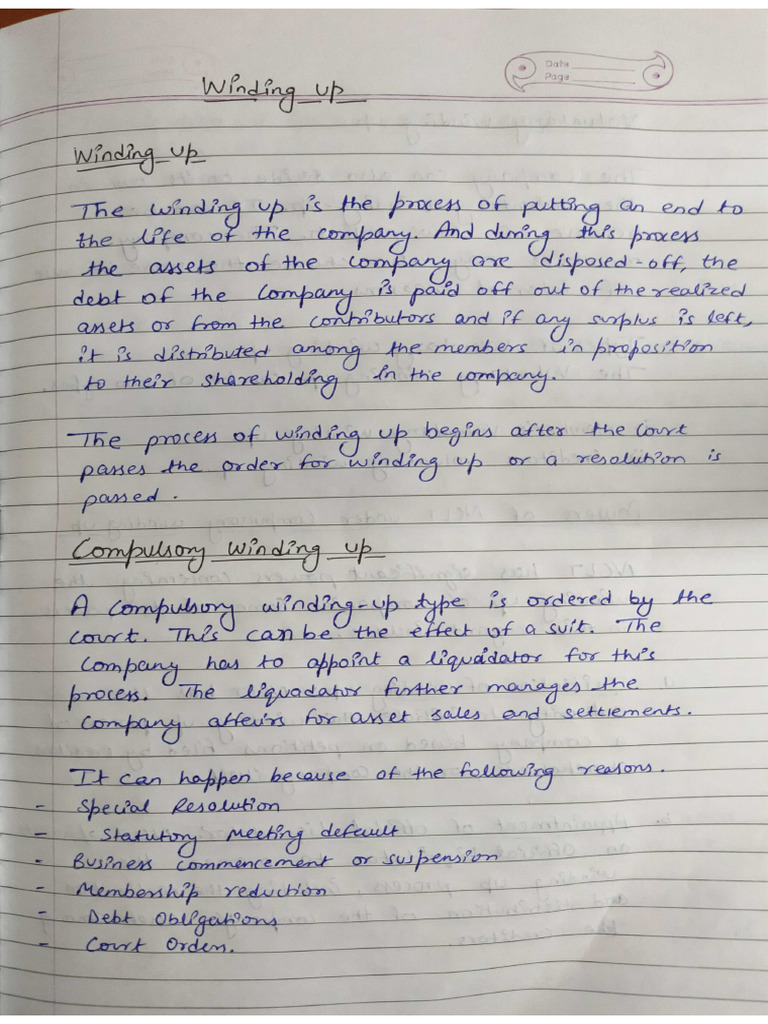 Winding up
Date
Page
Winding up
The winding up is the process of putting an end to
the life of the company. And during this process
the assets of the company are disposed-off, the
debt of the company is paid off out of the realized
assets or from the contributors and if any surplus is left,
it is distributed among the members in proposition
to their shareholding in the company.
The process of winding up begins after the court
passes the order for winding up or a resolution is
passed.
Compulsory winding up
A compulsory winding-up type is ordered by the
court. This can be the effect of a suit. The
company has to appoint a liquidator for this
process. The liquadator further manages the
company affeirs for asset sales and settlements.
It can happen because of the following reasons.
- Special Resolution
- Statutory Meeting default
- Business commencement or suspension
- Membership reduction
- Debt obligations
- Court Orden.